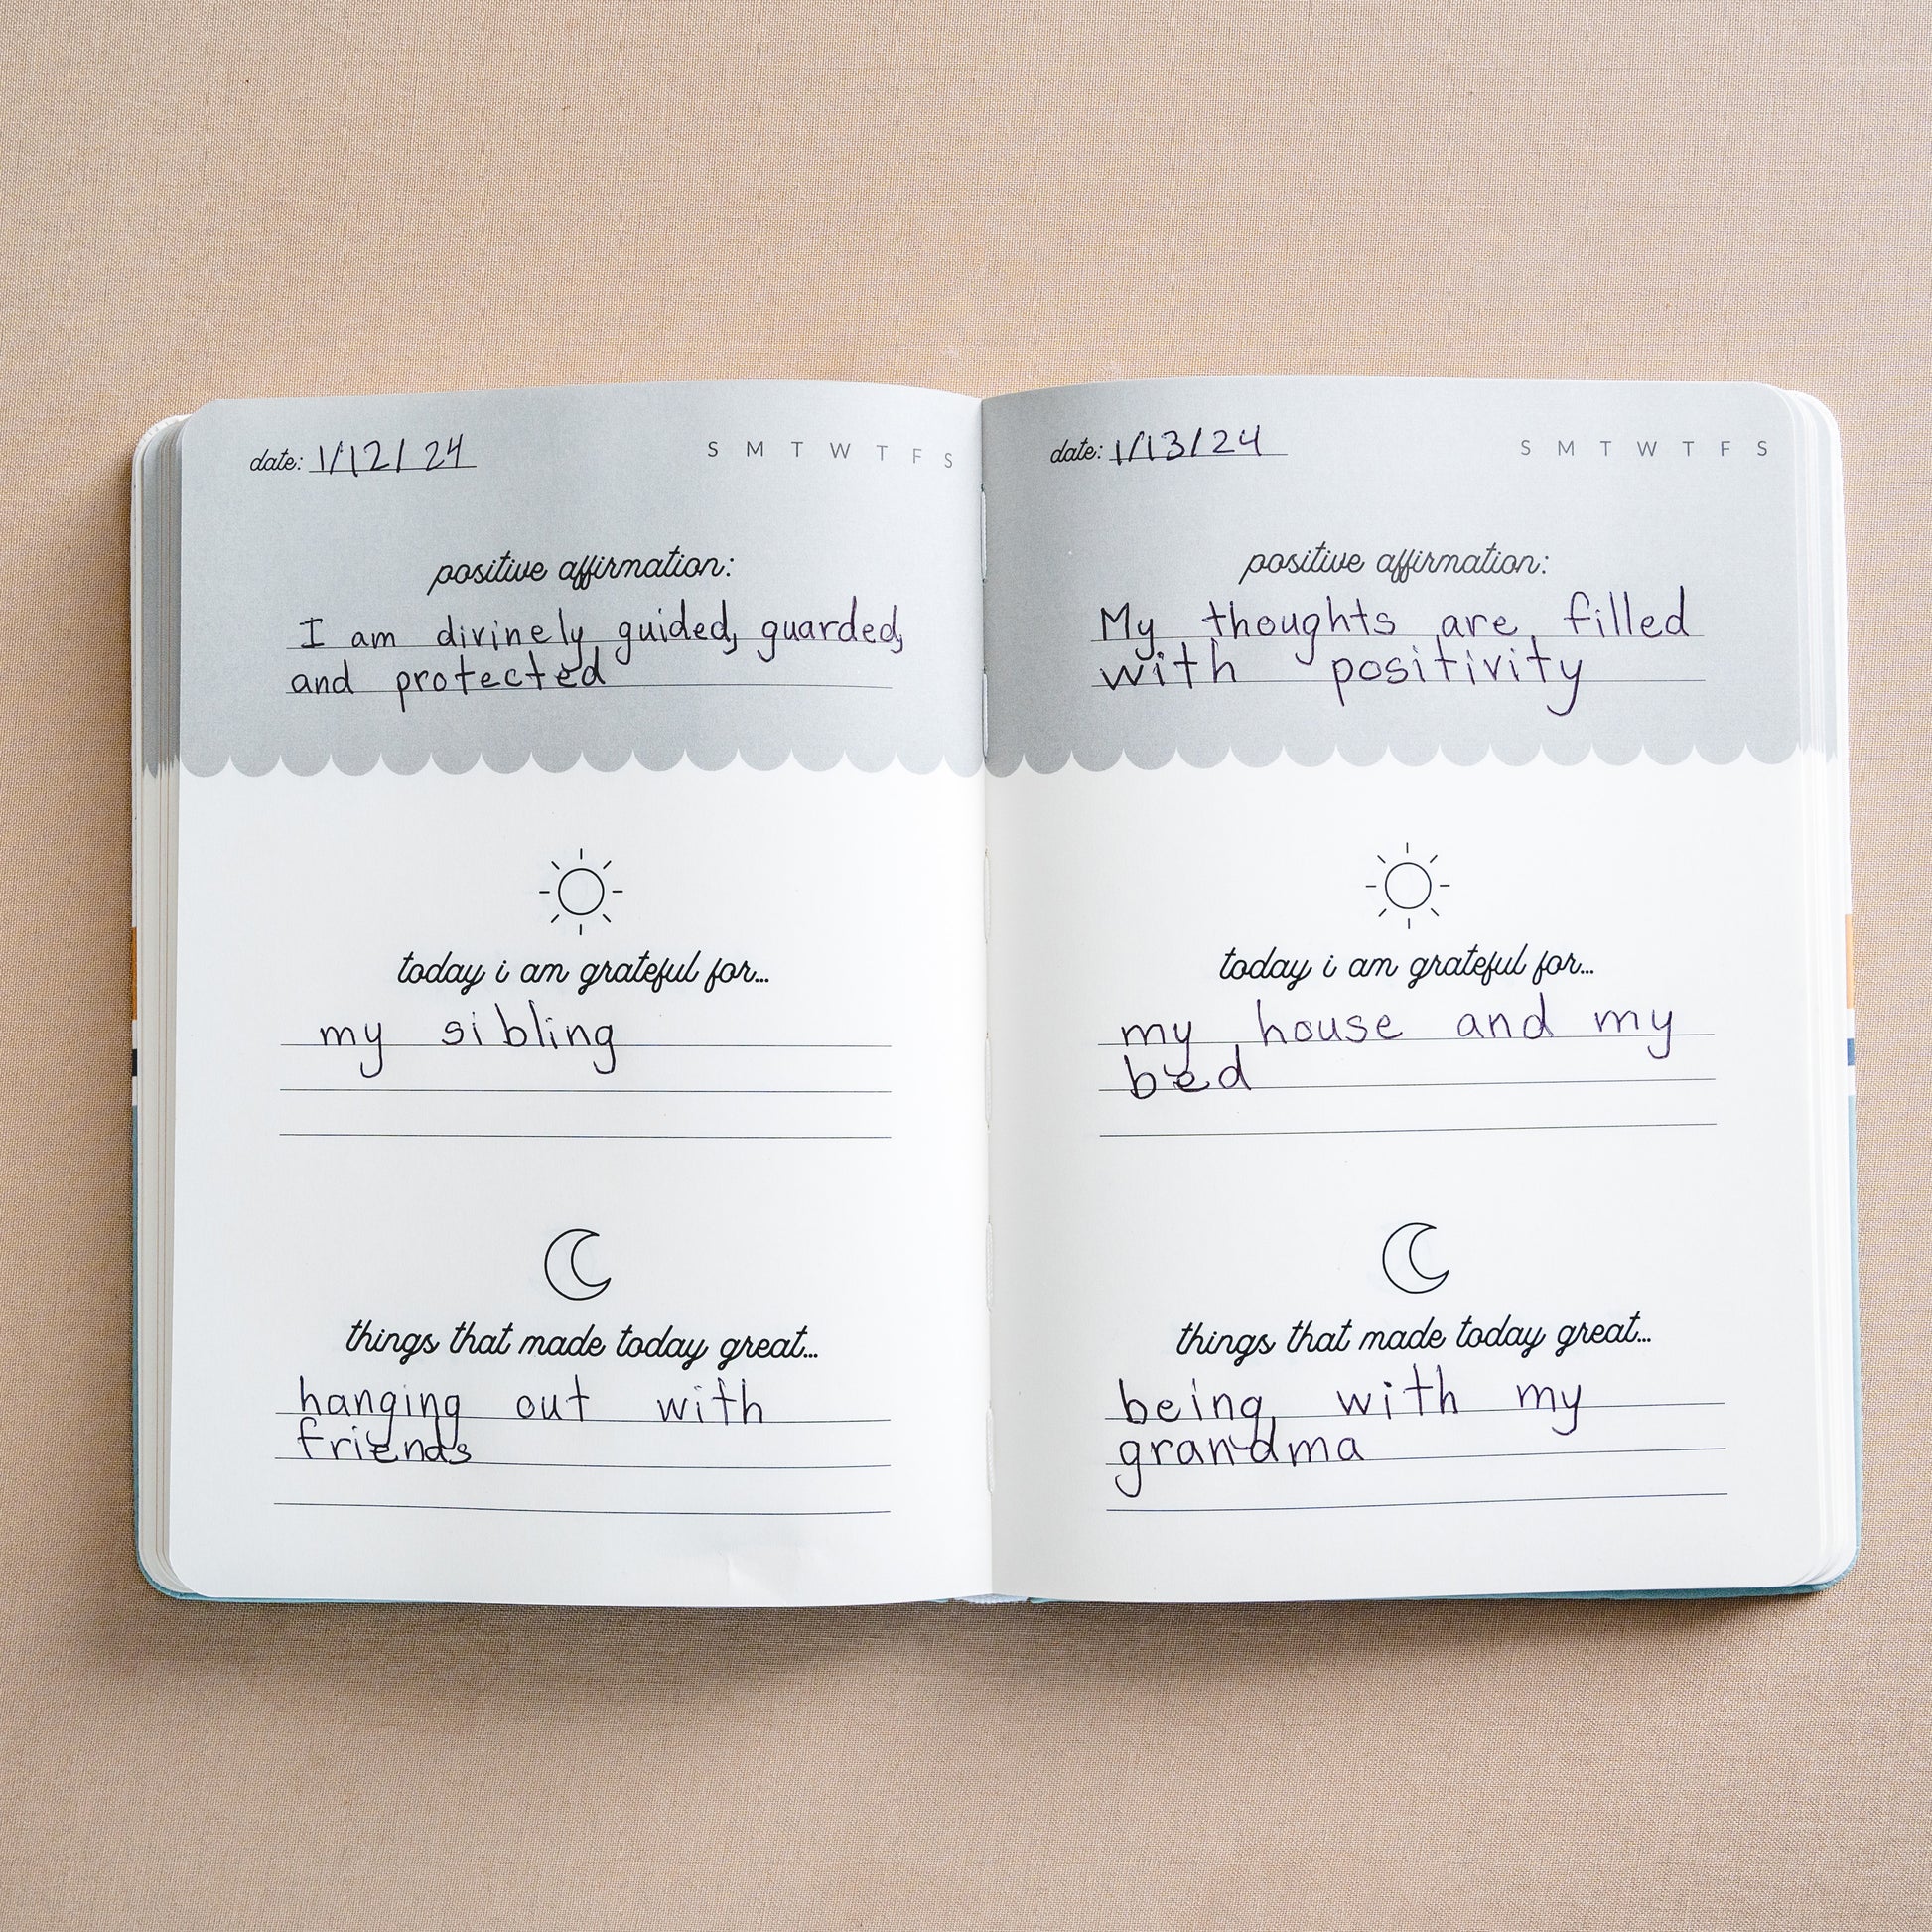 date: 1/12/24 S M T W T F S
positive affirmation:
I am divinely guided, guarded,
and protected
today i am grateful for...
my sibling
things that made today great...
hanging out with
friends
date: 1/13/24 S M T W T F S
positive affirmation:
My thoughts are filled
with positivity
today i am grateful for...
my house and my
bed
things that made today great...
being with my
grandma